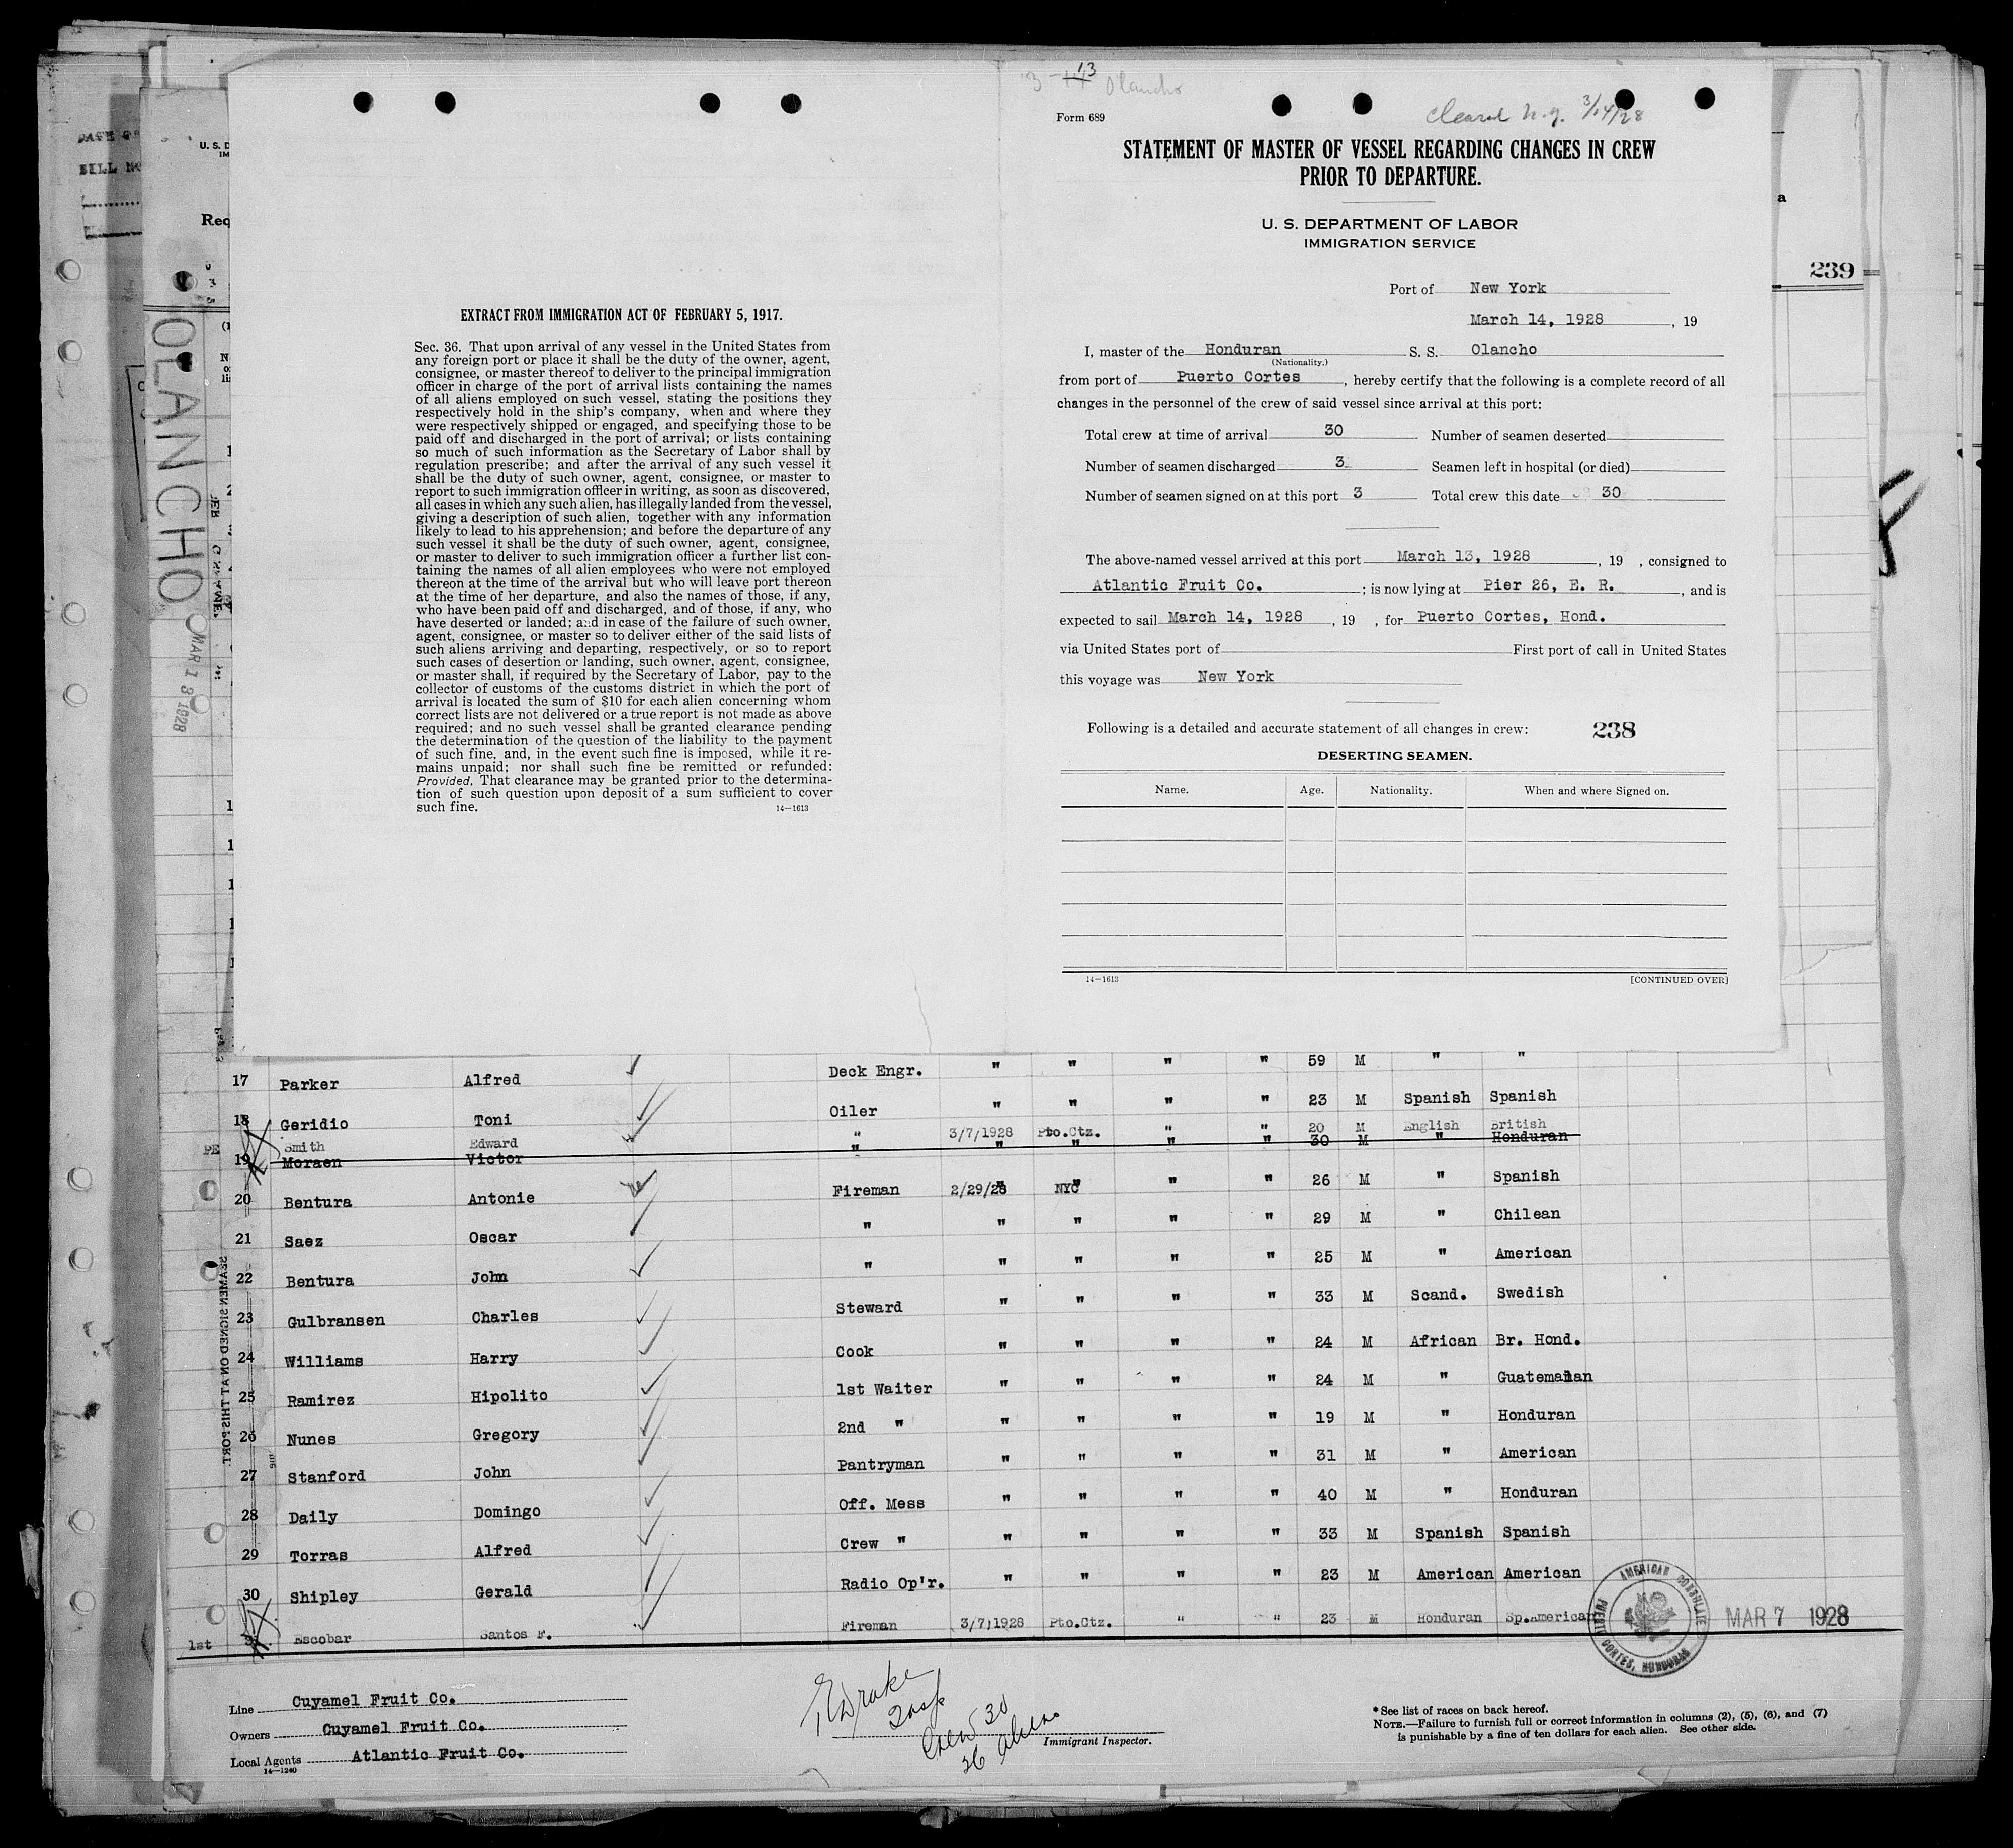 13
3 - 14 Olancho
Form 689
STATEMENT OF MASTER OF VESSEL REGARDING CHANGES IN CREW
PRIOR TO DEPARTURE.
U. S. DEPARTMENT OF LABOR
IMMIGRATION SERVICE
Port of New York
March 14, 1928, 19
I, master of the Honduran S. S. Olancho
(Nationality.)
from port of Puerto Cortes, hereby certify that the following is a complete record of all
changes in the personnel of the crew of said vessel since arrival at this port:
Total crew at time of arrival 30 Number of seamen deserted
Number of seamen discharged 3 Seamen left in hospital (or died)
Number of seamen signed on at this port 3 Total crew this date 30
The above-named vessel arrived at this port March 13, 1928, 19 , consigned to
Atlantic Fruit Co. ; is now lying at Pier 26, E. R. , and is
expected to sail March 14, 1928, 19 , for Puerto Cortes, Hond.
via United States port of First port of call in United States
this voyage was New York
Following is a detailed and accurate statement of all changes in crew: 238
DESERTING SEAMEN.
Name. Age. Nationality. When and where Signed on.
14—1613 [CONTINUED OVER]
EXTRACT FROM IMMIGRATION ACT OF FEBRUARY 5, 1917.
Sec. 36. That upon arrival of any vessel in the United States from
any foreign port or place it shall be the duty of the owner, agent,
consignee, or master thereof to deliver to the principal immigration
officer in charge of the port of arrival lists containing the names
of all aliens employed on such vessel, stating the positions they
respectively hold in the ship's company, when and where they
were respectively shipped or engaged, and specifying those to be
paid off and discharged in the port of arrival; or lists containing
so much of such information as the Secretary of Labor shall by
regulation prescribe; and after the arrival of any such vessel it
shall be the duty of such owner, agent, consignee, or master to
report to such immigration officer in writing, as soon as discovered,
all cases in which any such alien, has illegally landed from the vessel,
giving a description of such alien, together with any information
likely to lead to his apprehension; and before the departure of any
such vessel it shall be the duty of such owner, agent, consignee,
or master to deliver to such immigration officer a further list con-
taining the names of all alien employees who were not employed
thereon at the time of the arrival but who will leave port thereon
at the time of her departure, and also the names of those, if any,
who have been paid off and discharged, and of those, if any, who
have deserted or landed; and in case of the failure of such owner,
agent, consignee, or master so to deliver either of the said lists of
such aliens arriving and departing, respectively, or so to report
such cases of desertion or landing, such owner, agent, consignee,
or master shall, if required by the Secretary of Labor, pay to the
collector of customs of the customs district in which the port of
arrival is located the sum of $10 for each alien concerning whom
correct lists are not delivered or a true report is not made as above
required; and no such vessel shall be granted clearance pending
the determination of the question of the liability to the payment
of such fine, and, in the event such fine is imposed, while it re-
mains unpaid; nor shall such fine be remitted or refunded:
Provided, That clearance may be granted prior to the determina-
tion of such question upon deposit of a sum sufficient to cover
such fine. 14—1613
239
OLANCHO
MAR 1 3 1928
SEAMEN SIGNED ON AT THIS PORT.
17 Parker Alfred Deck Engr. " " " " 59 M " "
18 Geridio Toni Oiler " " " " 23 M Spanish Spanish
Smith Edward " 3/7/1928 Pto.Ctz. " " 20 M English British
19 Moraen Victor " " " " " 30 M " Honduran
20 Bentura Antonie Fireman 2/29/28 NYC " " 26 M " Spanish
21 Saez Oscar " " " " " 29 M " Chilean
22 Bentura John " " " " " 25 M " American
23 Gulbransen Charles Steward " " " " 33 M Scand. Swedish
24 Williams Harry Cook " " " " 24 M African Br. Hond.
25 Ramirez Hipolito 1st Waiter " " " " 24 M " Guatemalan
26 Nunes Gregory 2nd " " " " " 19 M " Honduran
27 Stanford John Pantryman " " " " 31 M " American
28 Daily Domingo Off. Mess " " " " 40 M " Honduran
29 Torras Alfred Crew " " " " " 33 M Spanish Spanish
30 Shipley Gerald Radio Op'r. " " " " 23 M American American
1st Escobar Santos F. Fireman 3/7/1928 Pto.Ctz. " " 23 M Honduran Sp.American
AMERICAN CONSULATE PUERTO CORTES, HONDURAS
MAR 7 1928
Line Cuyamel Fruit Co.
Owners Cuyamel Fruit Co.
Local Agents Atlantic Fruit Co.
14—1240
Crew 30
Immigrant Inspector.
*See list of races on back hereof.
NOTE.—Failure to furnish full or correct information in columns (2), (5), (6), and (7)
is punishable by a fine of ten dollars for each alien. See other side.